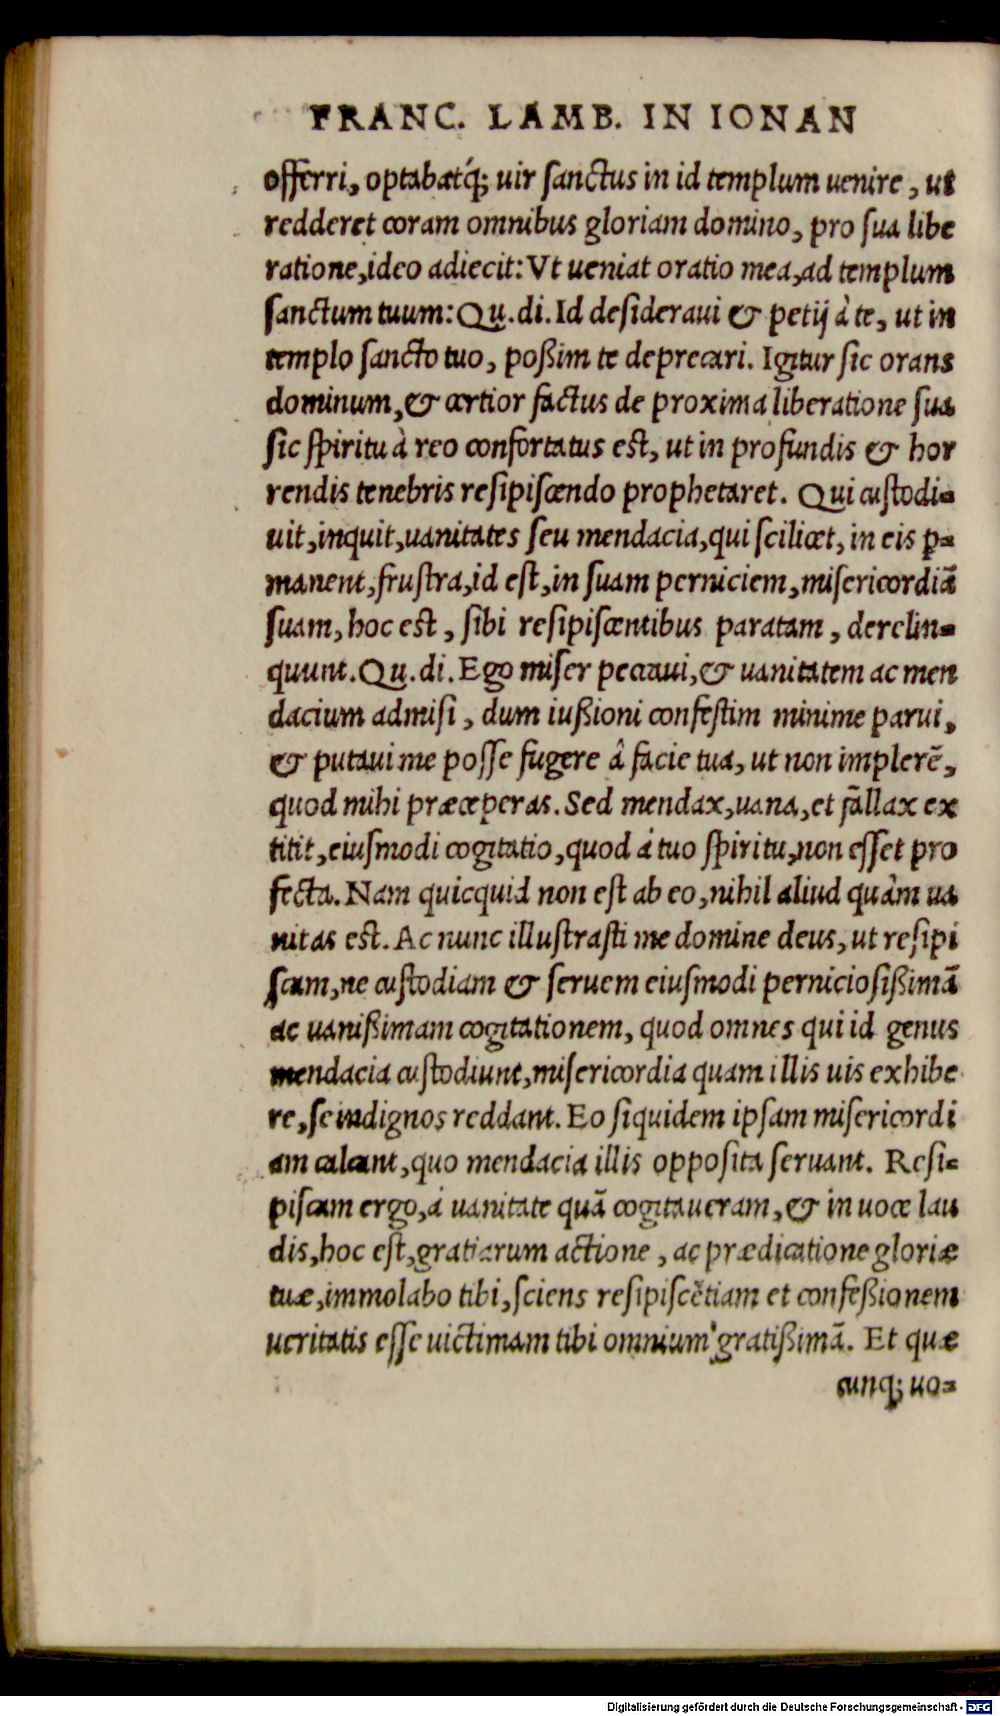 FRANC. LAMB. IN IONAN
offerri, optabatq́; uir sanctus in id templum uenire, ut
redderet coram omnibus gloriam domino, pro sua libe
ratione, ideo adiecit: Vt ueniat oratio mea, ad templum
sanctum tuum: Qu. di. Id desideraui & petij à te, ut in
templo sancto tuo, poßim te deprecari. Igitur sic orans
dominum, & certior factus de proxima liberatione sua
sic spiritu à reo confortatus est, ut in profundis & hor
rendis tenebris resipiscendo prophetaret. Qui custodi-
uit, inquit, uanitates seu mendacia, qui scilicet, in eis p-
manent, frustra, id est, in suam perniciem, misericordiã
suam, hoc est, sibi resipiscentibus paratam, derelin-
quunt. Qu. di. Ego miser peccaui, & uanitatem ac men
dacium admisi, dum iußioni confestim minime parui,
& putaui me posse fugere â facie tua, ut non implerẽ,
quod mihi præceperas. Sed mendax, uana, et fallax ex
titit, eiusmodi cogitatio, quod à tuo spiritu, non esset pro
fecta. Nam quicquid non est ab eo, nihil aliud quàm ua
nitas est. Ac nunc illustrasti me domine deus, ut resipi
scam, ne custodiam & seruem eiusmodi perniciosißimã
ac uanißimam cogitationem, quod omnes qui id genus
mendacia custodiunt, misericordia quam illis uis exhibe
re, se indignos reddant. Eo siquidem ipsam misericordi
am calcant, quo mendacia illis opposita seruant. Resi-
piscam ergo, à uanitate quã cogitaueram, & in uoce lau
dis, hoc est, gratiarum actione, ac prædicatione gloriæ
tuæ, immolabo tibi, sciens resipiscẽtiam et confeßionem
ueritatis esse uictimam tibi omnium gratißimã. Et quæ
cunq; uo-
Digitalisierung gefördert durch die Deutsche Forschungsgemeinschaft - DFG